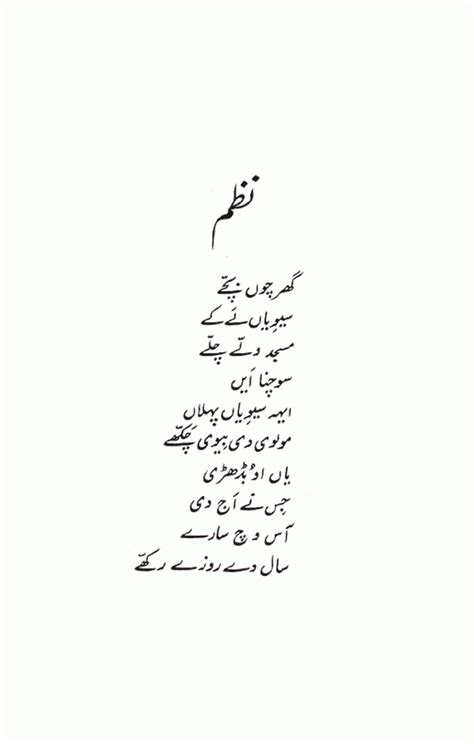 نظم
گھر چوں بچّے
سیوِیاں لَے کے
مسجد ولّے چلّے
سوچنا اَیں
ایہہ سیوِیاں پہلاں
مولوی دی بیوی چکّھے
یاں اوہ بُڈھڑی
جِس نے اَج دی
آس وِچ سارے
سال دے روزے رکھّے